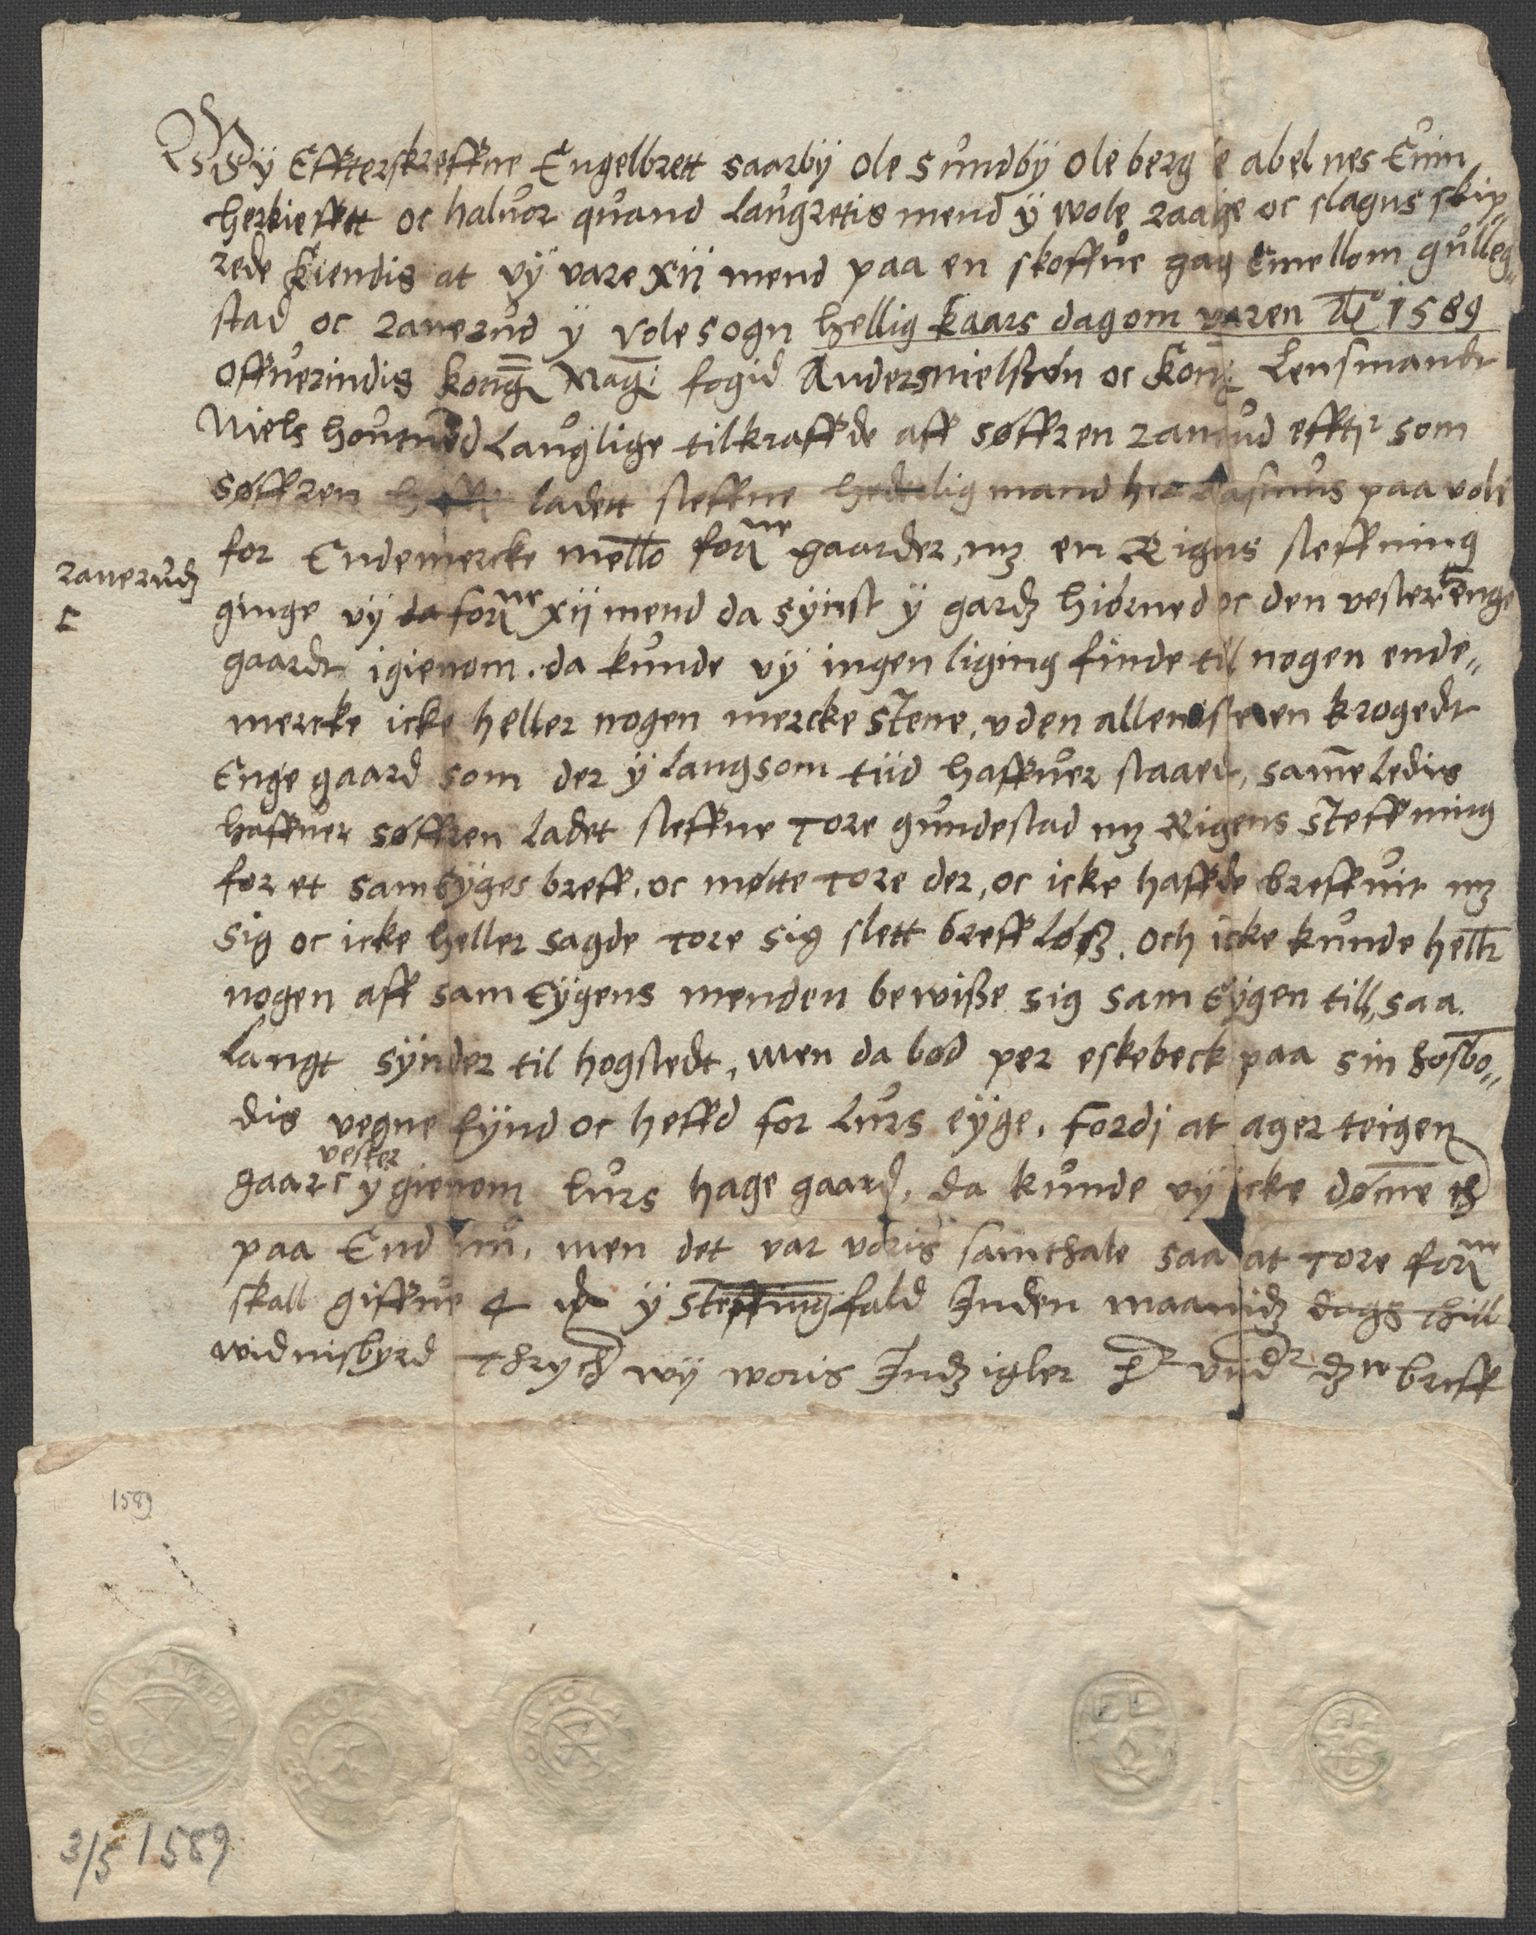 Wÿ Effterskreffne Engelbrett saarbÿ ole sundbÿ ole berg e abelnes Euin
herkiestt oc haluor quand laugretis mend ÿ wole raage oc slagns skip,,
rede kiendis at vÿ vare xii mend paa en skoffue gag Emellom gulleg,,
stad oc rauerud ÿ vole sogn hellig kaars dag om varen Ao 1589
offuerindis kong: Mag: fogid Anders nielsßøn oc kon: Lensmandt
Niels houtued lauglige tilkraffde aff søffren rauerud effter som
søffren haffr ladett steffne hederlig mand her rasmus paa vole
for Endemercke mello forne gaarder, mz en Rigns steffning
rauerudz
ginge vÿ da forne xii mend da sÿnst ÿ gardz hiørned oc den vester Enge
gaardt igienom. da kunde vÿ ingen liging finde til nogen ende,,
mercke icke heller nogen mercke stene, vden alleniste en krogedt
Enge gaard som der ÿ langsom tiid haffuer staaed, same ledis
haffuer søffren ladet steffne Tore gundestad mz Rigens steffning
for et sameÿges breff. oc møtte Tore der, oc icke haffde breffuit mz
sig oc icke heller sagde Tore sig slett breffløß. och icke kunde heller
nogen aff sam Eÿgens menden bewiße sig sam Eÿgen till, saa
langt sÿnder til hogstedt, men da bød per eskebeck paa sin hosbo,,
dis vegne fÿnd oc heffd for lurs eÿge. fordi at ager teigen
vester
gaar ÿ gienom lurs hage gaard, da kunde vÿ icke døme
paa End nu, men det var voris samthale saa at Tore forne
skall giffue 4 ÿ steffningfald Inden maanidz dags thill
widnisbyrd Thrych wÿ woris Indzigler
breff
1589
3/5 1589